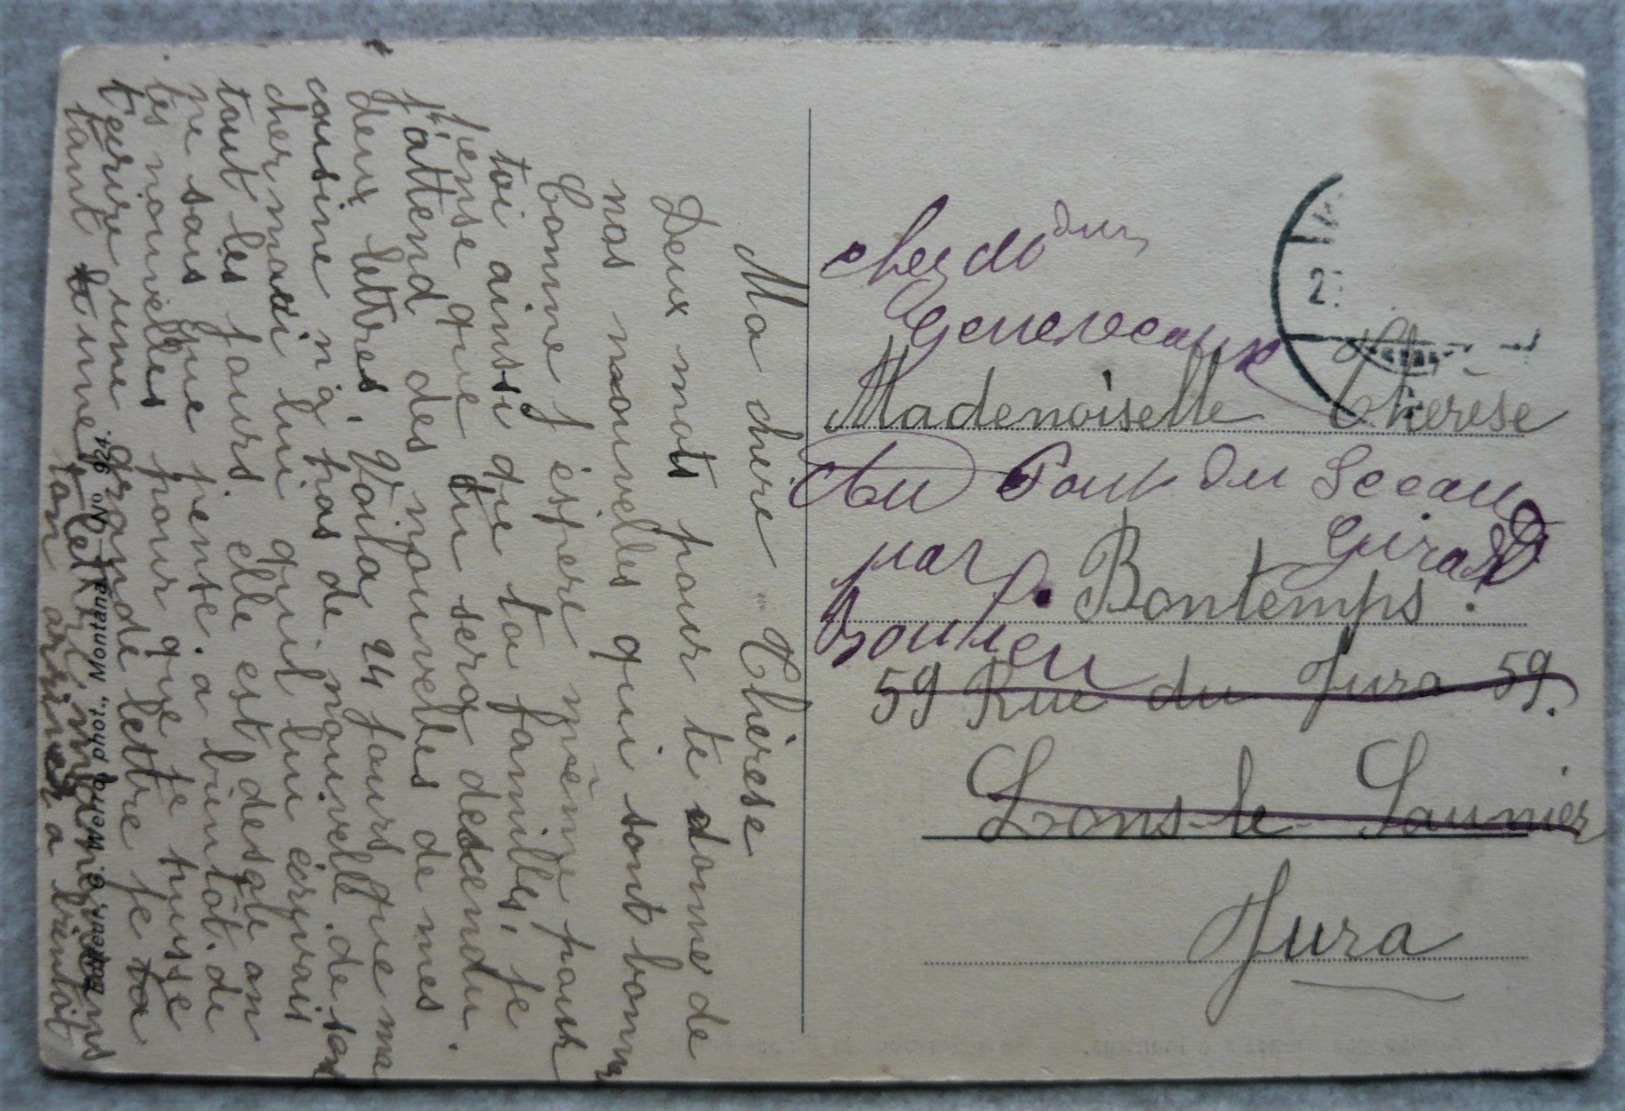 Ma chère Thérèse
Deux mots pour te donne de
nos nouvelles qui sont bonne
Comme j'éspere même pour
toi ainssi que ta familles, je
pense que tu sera descendu.
j'attend des nouvelles de mes
deux lettres, Voila 24 jours que ma
cousine n'a pas de nouvelle de son
cher mari lui qu'il lui écrivais
tout les jours elle est desole on
ne sais que pense. a bientôt de
tes nouvelles pour que je puisse
t'ecrire une grande lettre je
tant une
ton a bientôt
Editeur, G. Metro, phot., Montana. No 924.
chez
Mademoiselle Thérèse
Au Pont du Seceau
Girard
par
Bontemps.
59 Rue du Jura 59.
Lons-le-Saunier
Jura